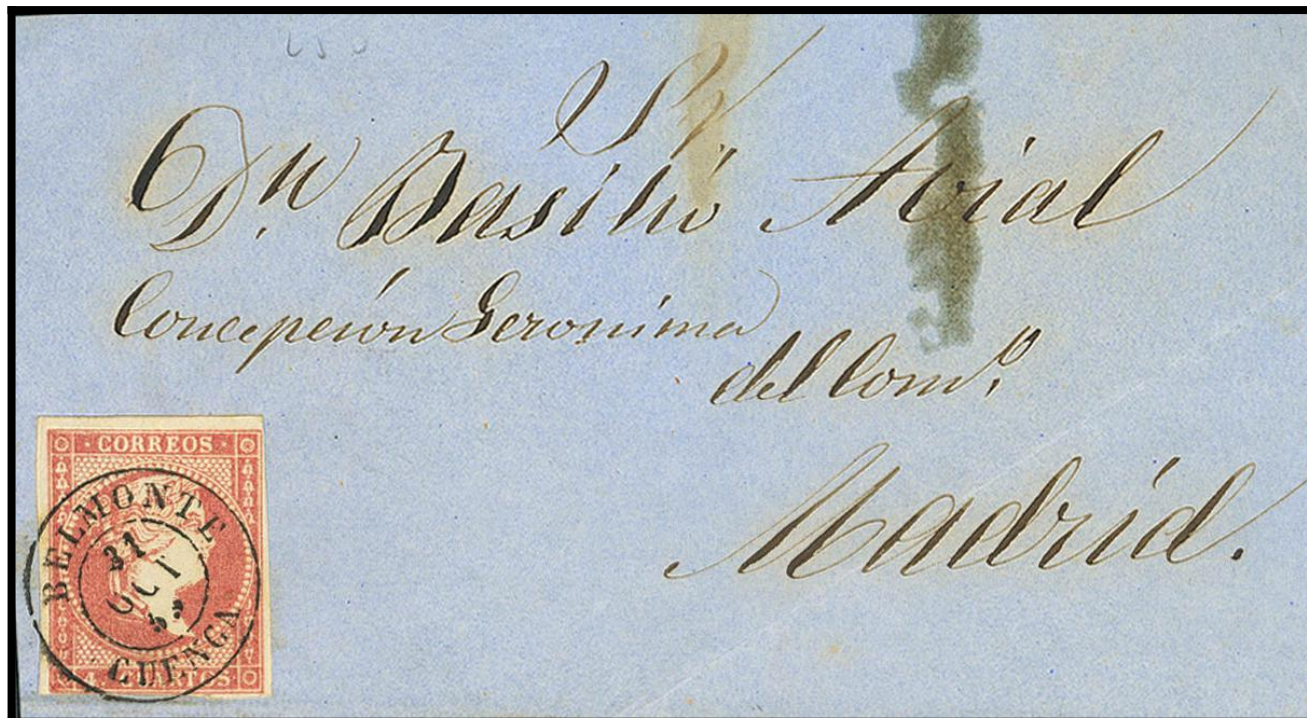 Sr
Dn Basilio Avial
Concepción Geronima
del Comº
Madrid.
· CORREOS ·
BELMONTE
31
OCT
CUENCA
4. CUARTOS